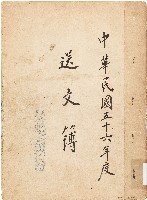 中華民國五十六年度
送文簿